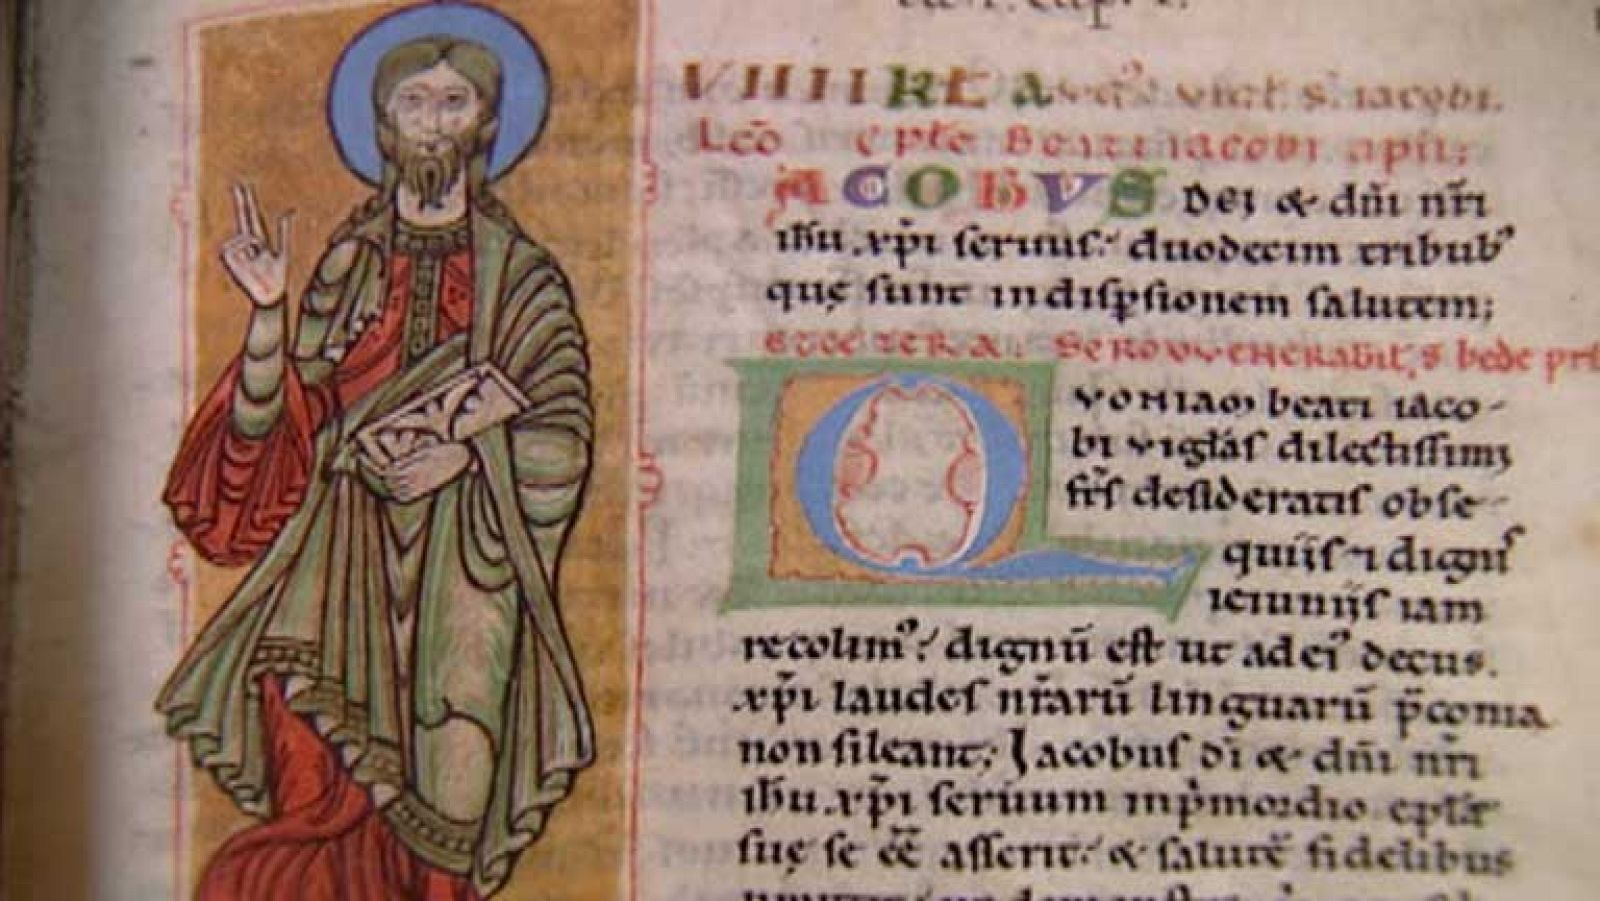 VIIII KL A vigl. S. iacobi.
Lc̄o epłe Beati iacobi apłi;
IACOBUS Dei & dn̄i nr̄i
ihu xp̄i seruus: duodecim tribub'
que sunt in dispsionem salutem;
ET CETERA. SERMO VENERABILIS bede
QVONIAM beati iaco-
bi vigłas dilectissimi
fr̄s desideratis obse-
quiis & dignis
ieiuniis iam
recolim': dignū est ut ad ei' decus.
xp̄i laudes nr̄arū linguarū p̄conia
non sileant; Jacobus di & dn̄i nr̄i
ihu xp̄i seruum in p̄mordio eptłe
sue se ee̅ asserit: & salutē fidelibus